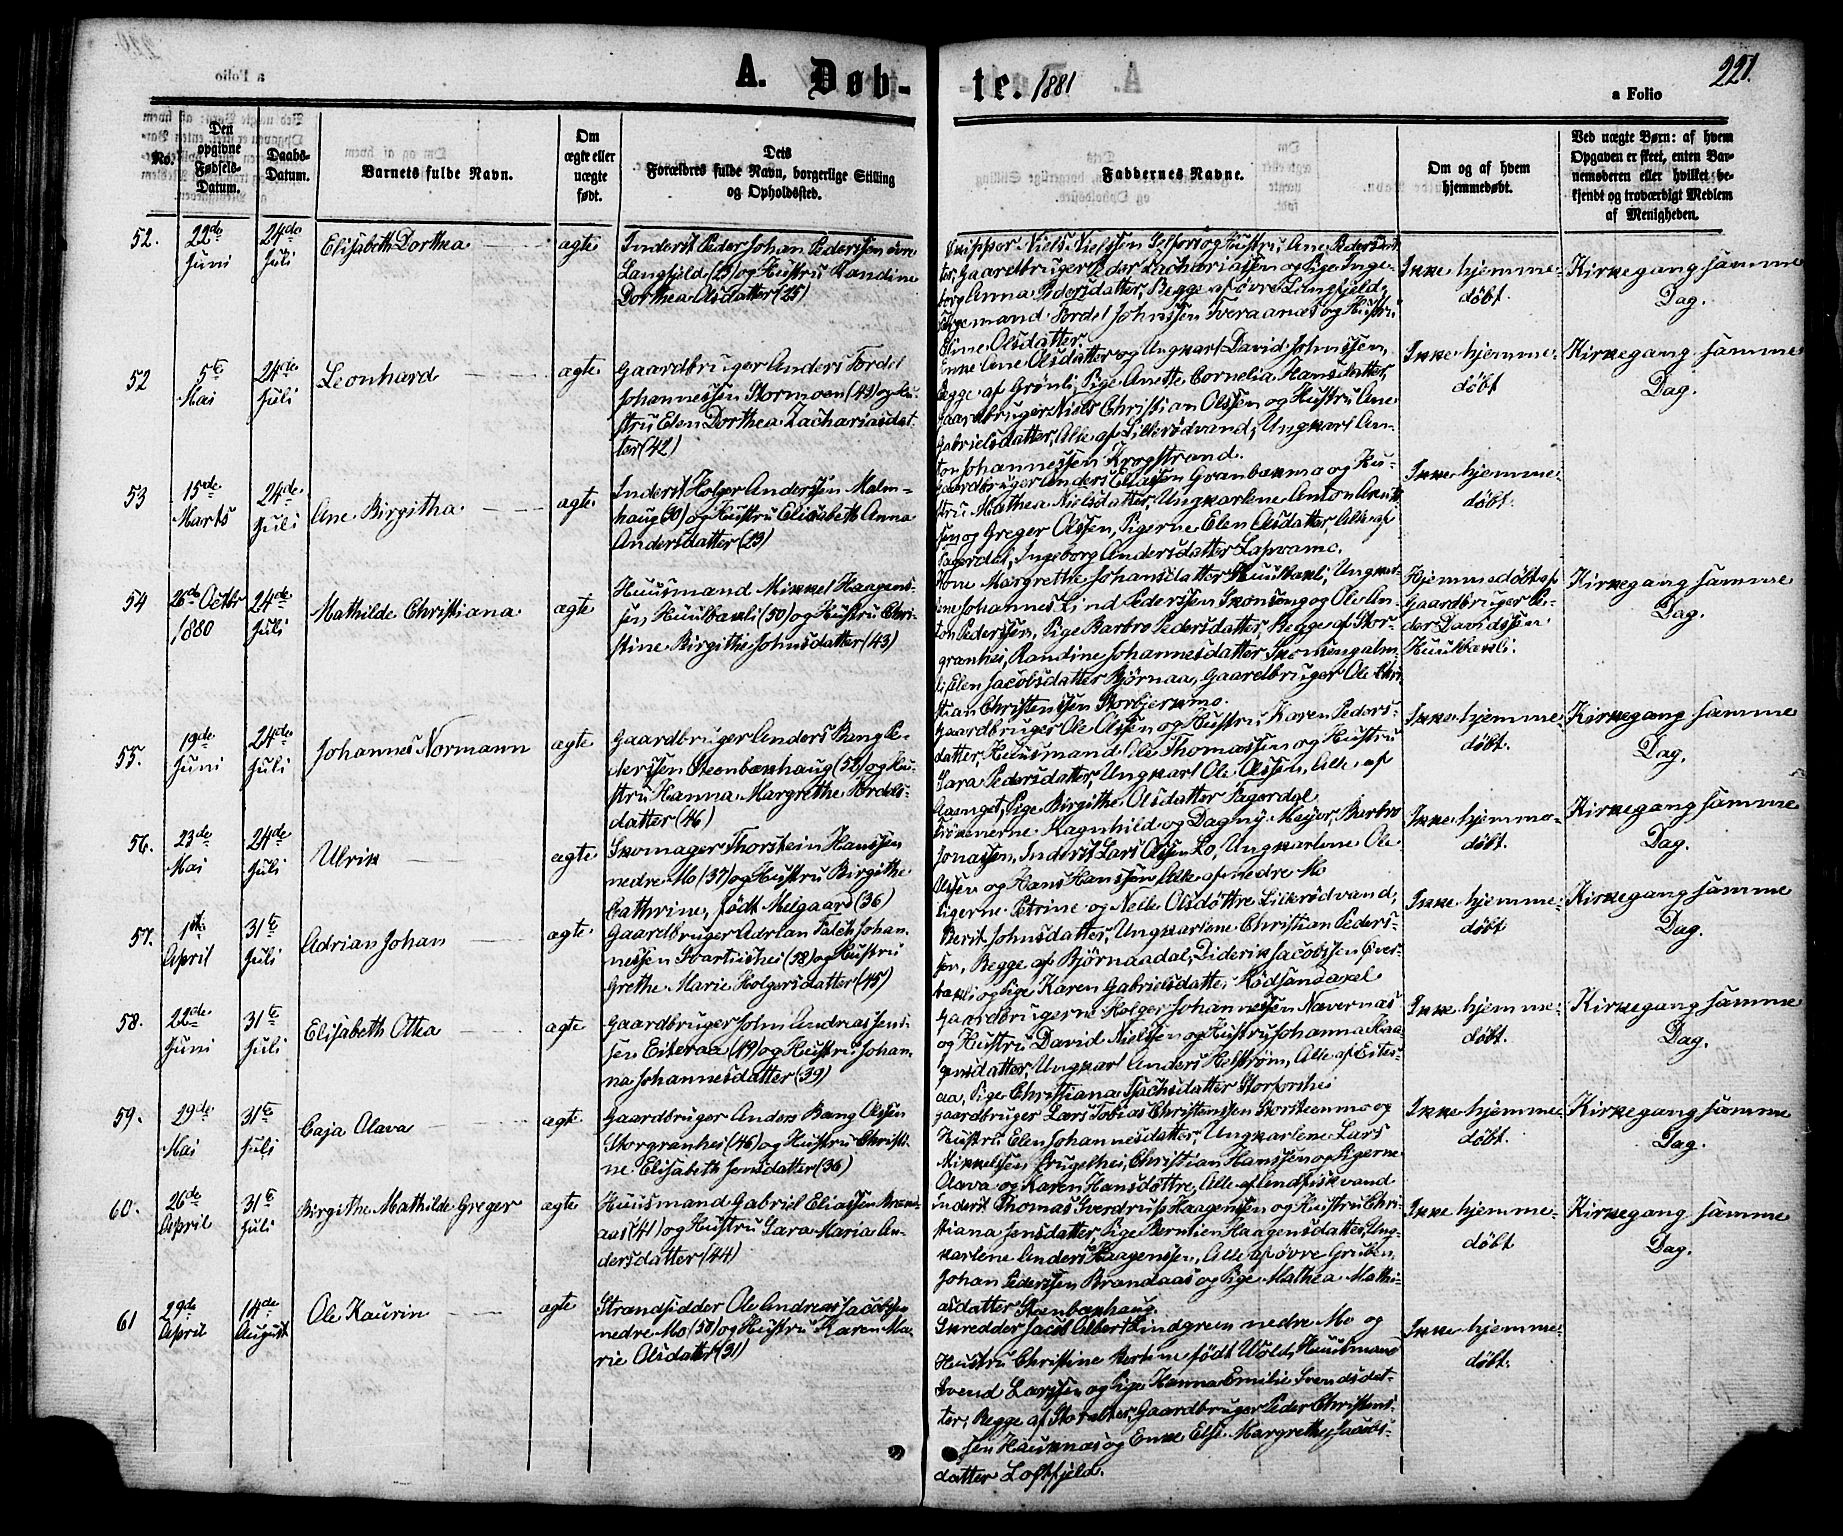 A. Døb-
te. 1881
221.
a Folio
No.
Den opgivne Fødsels-Datum.
Daabs-Datum.
Barnets fulde Navn.
Om ægte eller uægte født.
Dets Forældres fulde Navn, borgerlige Stilling og Opholdssted.
Faddernes Navne.
Om og af hvem hjemmedøbt.
Ved uægte Børn: af hvem Opgaven er skeet, enten Barnemoderen eller hvilket bekjendt og troværdigt Medlem af Menigheden.
52.
22de Juni
24de Juli
Elisabeth Dorthea
ægte
Inderst Peder Johan Pederssen øvre
Langfjeld (23) og Hustru Randine
Dorthea Olsdatter (25)
Skipper Niels Nielssen Selfors og Hustru Ane Pedersdat-
ter, Gaardbruger Peder Zachariassen og Pige Inge-
borg Anna Pedersdatter, Begge af øvre Langfjeld,
Tordel Johnssen Tveraanæs og Hustru
Olsdatter.
Ikke hjemme-
døbt.
Kirkegang samme
Dag.
52
5te Mai
24de Juli
Leonhard
ægte
Gaardbruger Anders Tordel
Johannessen Stormoen (43) og Hu-
stru Elen Dorthea Zachariasdat
ter (42)
Enke Ane Olsdatter og Ungkarl David Johnssen,
Begge af Grønli, Pige Anette Cornelia Hansdatter,
Gaardbruger Niels Christian Olssen og Hustru Ane
Gabrielsdatter, Alle af Lillerødvand, Ungkarl An-
ton Johannessen Krogstrand.
Ikke hjemme-
døbt
Kirkegang samme
Dag.
53
15de Marts
24de Juli
Ane Birgitha
ægte
Inderst Holger Anderssen Malm-
haug (30) og Hustru Elisabeth Anna
Andersdatter (23)
Gaardbruger Anders Eliassen Granbækmo og Hu-
stru Mathea Nielsdatter, Ungkarlene Anton
sen og Greger Olssen, Pigerne Elen Olsdatter, Alle af
Fagerdal, Ingeborg Andersdatter
Ikke hjemme-
døbt.
54
26de Octbr 1880
24de Juli
Mathilde Christiana
ægte
Huusmand Mikkel Haagens-
sen, Huulbækli (50) og Hustru Chri-
stine Birgithe Johnsdatter (43)
Kone Margrethe Johansdatter Huulbækli, Ungkar-
lene Johannes Lind Pederssen Skonseng og Ole An-
ton Pederssen, Pige Barbro Pedersdatter, Begge af Stor-
granhei, Randine Johannesdatter
Elen Jacobsdatter Bjørnaa, Gaardbruger Ole Chri-
stian Christenssen Storbjerkmo.
Hjemmedøbt af
Gaardbruger Pe-
der Davidssen
Huulbækli.
Kirkegang samme
Dag.
55.
19de Juni
24de Juli
Johannes Normann
ægte
Gaardbruger Anders Bang Pe-
derssen Steenbækhaug (52) og Hu-
stru Hanna Margrethe Tordels-
datter (46)
Gaardbruger Ole Olssen og Hustru Karen Peders-
datter, Huusmand Ole Thomassen og Hustru
Sara Pedersdatter, Ungkarl Ole Olssen, Alle af
Pige Birgithe Olsdatter Fagerdal
Ikke hjemme-
døbt.
Kirkegang samme
Dag.
56.
23de Mai
24de Juli
Ulrik
ægte
Skomager Thorstein Hanssen
nedre Mo (37) og Hustru Birgithe
Cathrine, født Melgaard (36)
Frøkenerne Ragnhild og Dagny Meyer, Barbro
Jonassen, Inderst Lars Olssen Lo, Ungkarlene Ole
Olssen og Hans Hanssen Alle af nedre Mo
Ikke hjemme-
døbt.
Kirkegang samme
Dag.
57.
1ste April
31te Juli
Adrian Johan
ægte
Gaardbruger Adrian Falch Johan-
nessen Svartishei (58) og Hustru
Grethe Marie Holgersdatter (45)
Pigerne Petrine og Nelle Olsdøttre Lillerødvand,
Berit Johnsdatter, Ungkarlene Christian Peders-
sen, Begge af Bjørnaadal, Diderik Jacobssen Øver-
bækli og Pige Karen Gabrielsdatter Rødsandaxel
Ikke hjemme-
døbt
Kirkegang samme
Dag.
58.
22de Juni
31te Juli
Elisabeth Ottea
ægte
Gaardbruger John Andreas Jens-
sen Eiteraa (49) og Hustru Johan-
na Johannesdatter (39)
Gaardbrugerne Holger Johannessen Nævernæs
og Hustru David Nielssen og Hustru Johanna Haa-
gensdatter, Ungkarl Anders Hestrøm, Alle af Eiter-
aa, Pige Christiana Isachsdatter Storforshei
Ikke hjemme-
døbt.
Kirkegang samme
Dag.
59.
29de Mai
31te Juli
Caja Olava
ægte
Gaardbruger Anders Bang Olssen
Storgranhei (46) og Hustru Christi-
ne Elisabeth Jensdatter (36)
Gaardbruger Lars Tobias Christenssen Storsteenmo og
Hustru Elen Johannesdatter, Ungkarlene Lars
Mikkelssen Brugelhei, Christian Hanssen og Pigerne
Olava og Karen Hansdøttre, Alle af
Ikke hjemme-
døbt.
Kirkegang samme
Dag.
60.
26de April
31te Juli
Birgithe Mathilde Greger
ægte
Huusmand Gabriel Eliassen Bran-
aas (41) og Hustru Sara Maria An-
dersdatter (44)
Inderst Thomas Sverdrup Haagenssen og Hustru Chri-
stiana Jensdatter, Pige Berntien Haagensdatter, Ung-
karlene Anders Haagenssen, Alle af øvre Gruben,
Johan Pederssen Brandaas og Pige Mathea Mathi-
asdatter Steenbækhaug.
Ikke hjemme-
døbt
Kirkegang samme
Dag.
61
29de April
14de August
Ole Kaurin
ægte
Strandsidder Ole Andreas Jacobssen
nedre Mo (50) og Hustru Karen Ma-
rie Olsdatter (31)
Skredder Jacob Albert Lindgren nedre Mo og
Hustru Christine Bertine født Wold, Huusmand
Svend Larssen og Pige Hanna Emilie Svendsdat-
ter, Begge af Storalter, Gaardbruger Peder Christens-
sen Hauknæs og Enke Else Margrethe Jacobs-
datter Loftfjeld.
Ikke hjemme-
døbt.